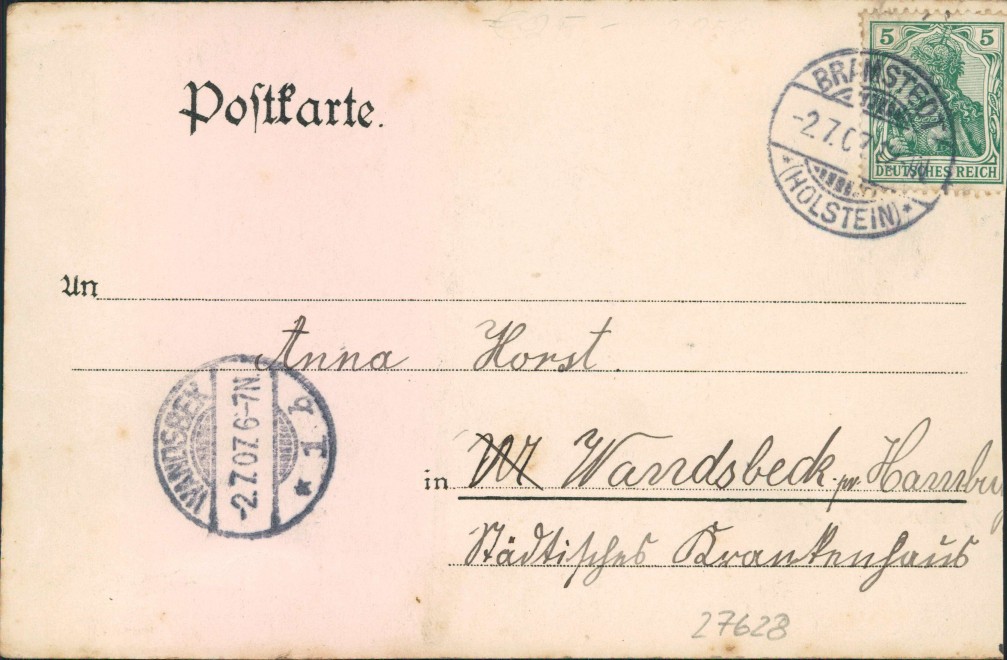 5 5
DEUTSCHES REICH
BRAMSTEDT
-2.7.07
(HOLSTEIN)
Postkarte.
An
Anna Horst.
WANDSBEK
-2.7.07. 6-7N.
* 1 b
in Wandsbeck pr. Hamburg
Städtisches Krankenhaus
27628